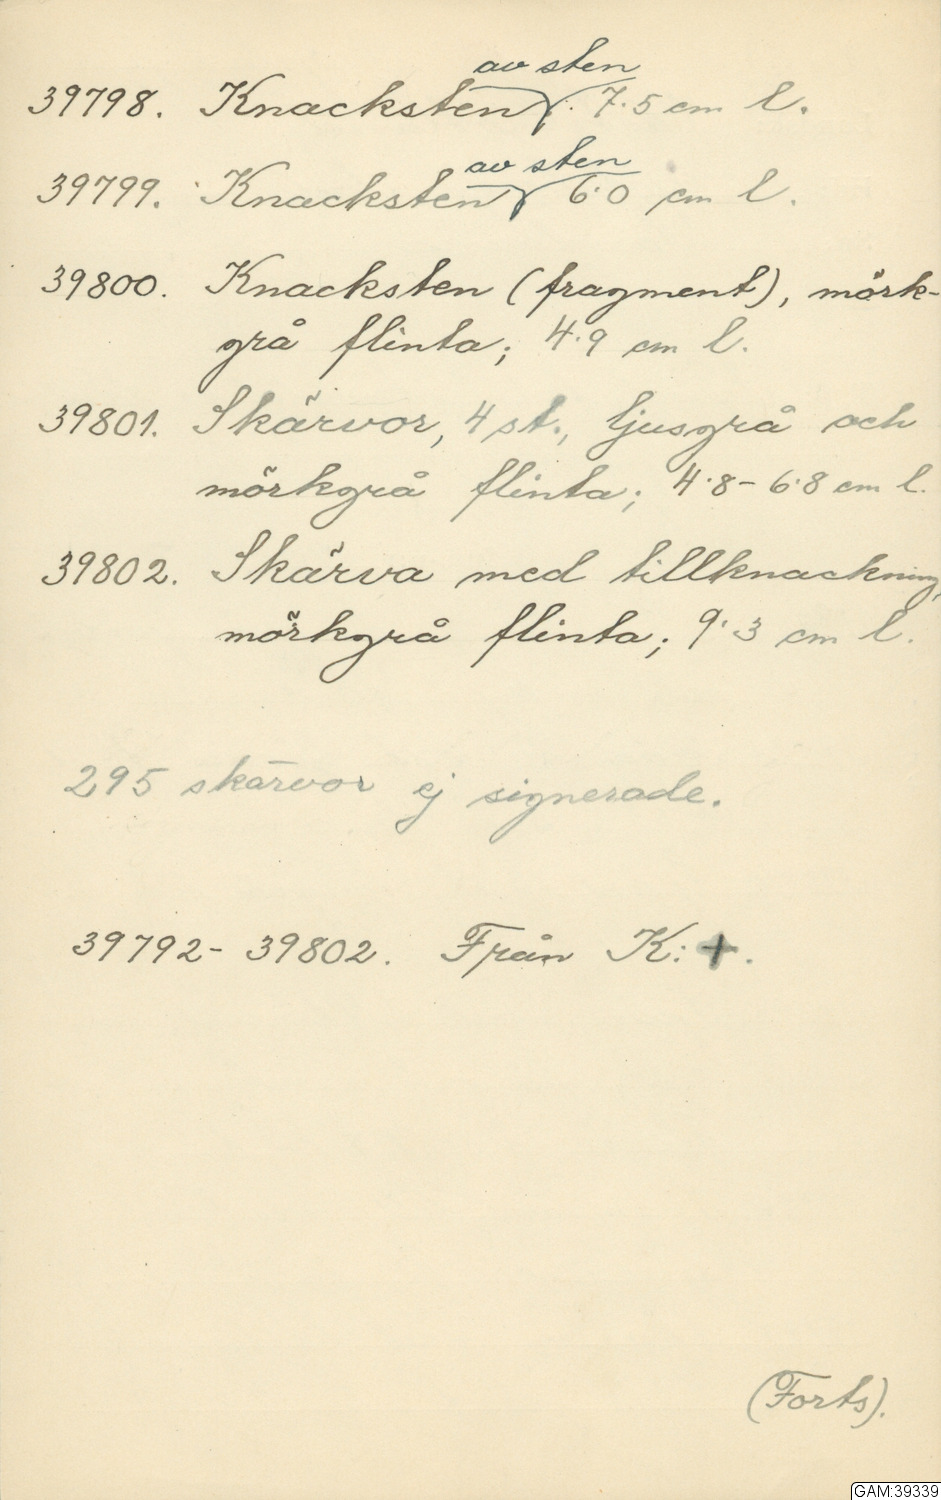 39798. Knacksten av sten; 7.5 cm l.
39799. Knacksten av sten; 6.0 cm l.
39800. Knacksten (fragment), mörk-
grå flinta; 4.9 cm l.
39801. Skärvor, 4 st., ljusgrå och
mörkgrå flinta; 4.8-6.8 cm l.
39802. Skärva med tillknackning,
mörkgrå flinta; 9.3 cm l.
295 skärvor ej signerade.
39792-39802. Från K: +.
(Forts).
GAM:39339